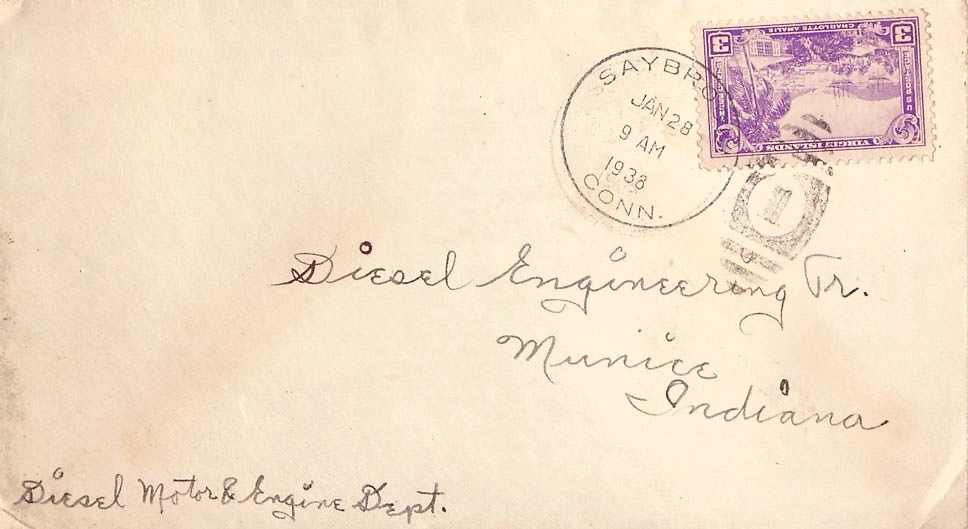 SAYBRO
JAN 28
9 AM
1938
CONN.
3 CHARLOTTE AMALIE 3
VIRGIN ISLANDS
1
Diesel Engineering Tr.
Munice
Indiana
Diesel Motor & Engine Dept.